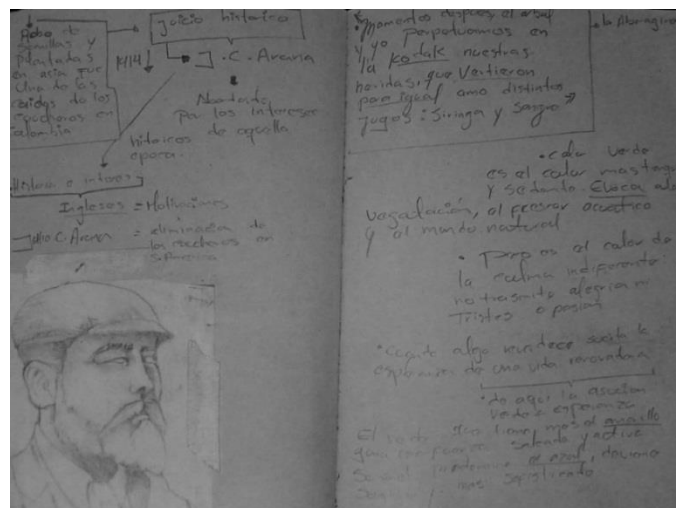 Robo de
semillas y
Plantadas
en asia fue
una de las
caidas de los
caucheros en
Colombia
Juicio historico
1914
J. C. Arana
Abordado
por los intereses
historicos de aquella
epoca.
Historia e interes
Ingleses = Motivaciones
Julio C. Arana = eliminacion de
los caucheros en
• Momentos despues el arbol
y yo perpetuamos en
la Kodak nuestras
heridas, que vertieron
para igual amo distintos
jugos: Siringa y sangre"
la Aborigina
• color verde
es el color mas tranq
y sedante. Evoca a la
vegetación, al frescor acuatico
y al mundo natural
• es el color de
la calma indiferente:
no trasmite alegria ni
Tristes o pasion
• Cuando algo reverdece suscita la
esperanza de una vida renovada
• de aqui la asocian
verde = esperanza
El verde que tiene mas el amarillo
gana en soleado y active
Si en el predomina el azul, deviene
mas sofisticado